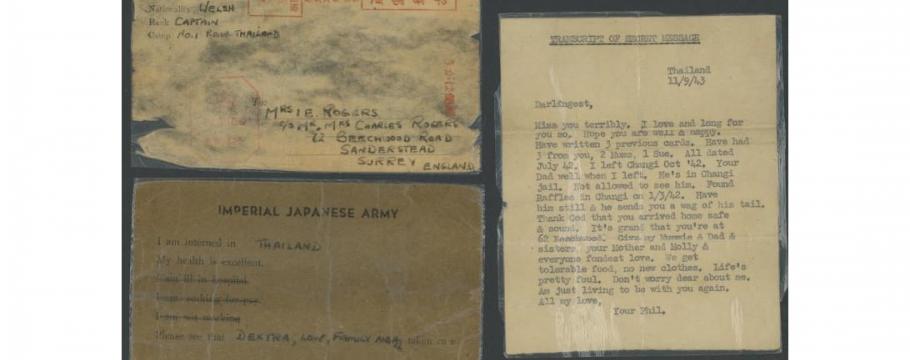 Nationality WELSH
Rank CAPTAIN
Camp No.1 P.O.W. THAILAND
To:
MRS I.E. ROGERS
c/o MR, MRS CHARLES ROGERS
62 BEECHWOOD ROAD
SANDERSTEAD
SURREY
ENGLAND
IMPERIAL JAPANESE ARMY
I am interned in THAILAND
My health is excellent.
I am ill in hospital.
I am working for pay.
I am not working
Please see that
LOVE, FAMILY
taken
TRANSCRIPT OF SECRET MESSAGE
Thailand
11/9/43
Darlingest,
Miss you terribly. I love and long for
you so. Hope you are well & happy.
Have written 3 previous cards. Have had
3 from you, 2 Mums, 1 Sue. All dated
July 42. I left Changi Oct '42. Your
Dad well when I left. He's in Changi
jail. Not allowed to see him. Found
Raffles in Changi on 1/3/42. Have
him still & he sends you a wag of his tail.
Thank God that you arrived home safe
& sound. It's grand that you're at
62 Beechwood. Give my Mummie & Dad &
sisters, your Mother and Molly &
everyone fondest love. We get
tolerable food, no new clothes. Life's
pretty foul. Don't worry dear about me.
Am just living to be with you again.
All my love,
Your Phil.